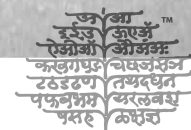 अ आ ™
इ ई उ ऊ ए
क ख ग घ ङ च छ ज झ ञ
ट ठ ड ढ ण त थ द ध न
प फ ब भ म य र ल व श
ष स ह ळ क्ष ज्ञ